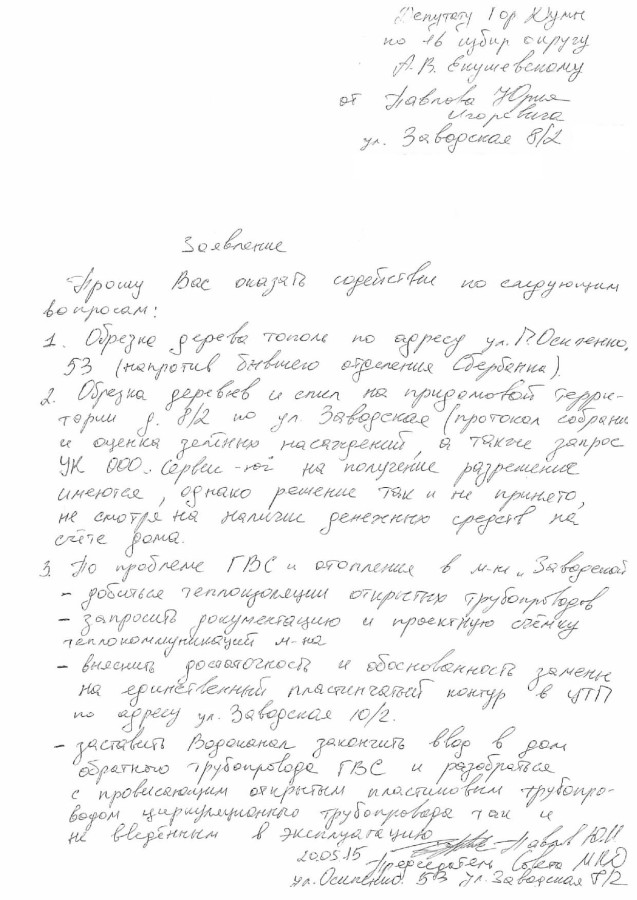 Депутату Гор Думы
по 16 избир округу
А.В. Екушевскому
от Павлова Юрия
Игоревича
ул. Заводская 8/2
Заявление
Прошу Вас оказать содействие по следующим
вопросам:
1. Обрезка дерева тополь по адресу ул. П. Осипенко,
53 (напротив бывшего отделения Сбербанка).
2. Обрезка деревьев и спил на придомовой терри-
тории д. 8/2 по ул. Заводская (протокол собрани
и оценка зелёных насаждений, а также запрос
УК ООО "Сервис-юг" на получение разрешения
имеются, однако решение так и не принято,
не смотря на наличие денежных средств на
счёте дома.
3. По проблеме ГВС и отопления в м-не "Заводской
- добиться теплоизоляции открытых трубопроводов
- запросить документацию и проектную съёмку
теплокоммуникаций м-на
- выяснить достаточность и обоснованность замены
на единственный пластинчатый контур в ЦТП
по адресу ул. Заводская 10/2.
- заставить Водоканал закончить ввод в дом
обратного трубопровода ГВС и разобраться
с провисающим открытым пластиковым трубопро-
водом циркуляционного трубопровода так и
не введённым в эксплуатацию
20.05.15 Павлов Ю.И
Председатель Совета МКД
ул. Осипенко 53 ул. Заводская 8/2